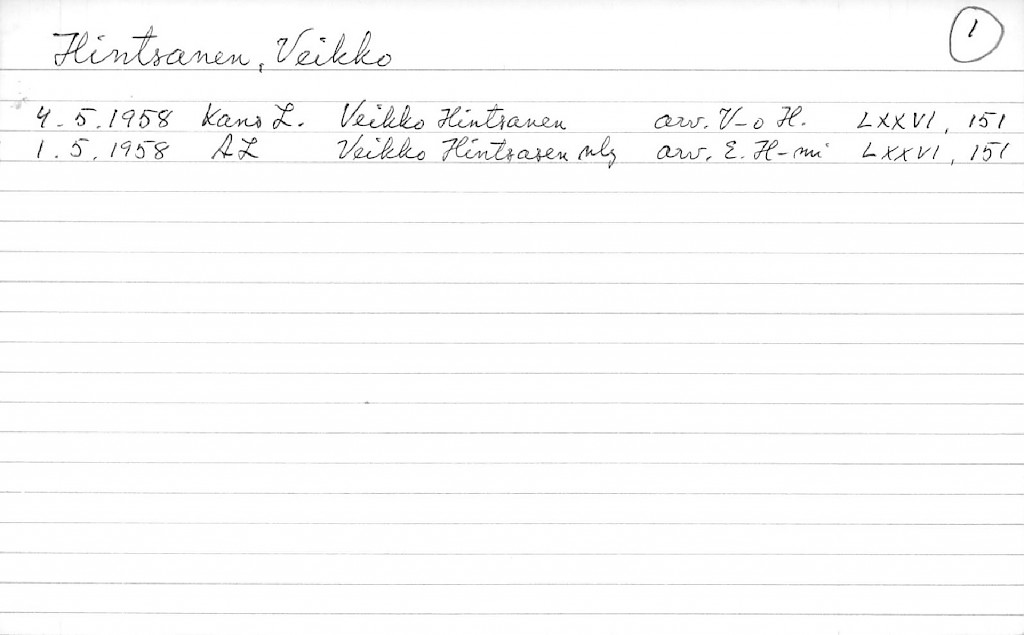 1
Hintsanen, Veikko
4.5.1958 Kans L. Veikko Hintsanen arv. V-o H. LXXVI, 151
1.5.1958 AL Veikko Hintsasen nlg arv. E. H-mi LXXVI, 151